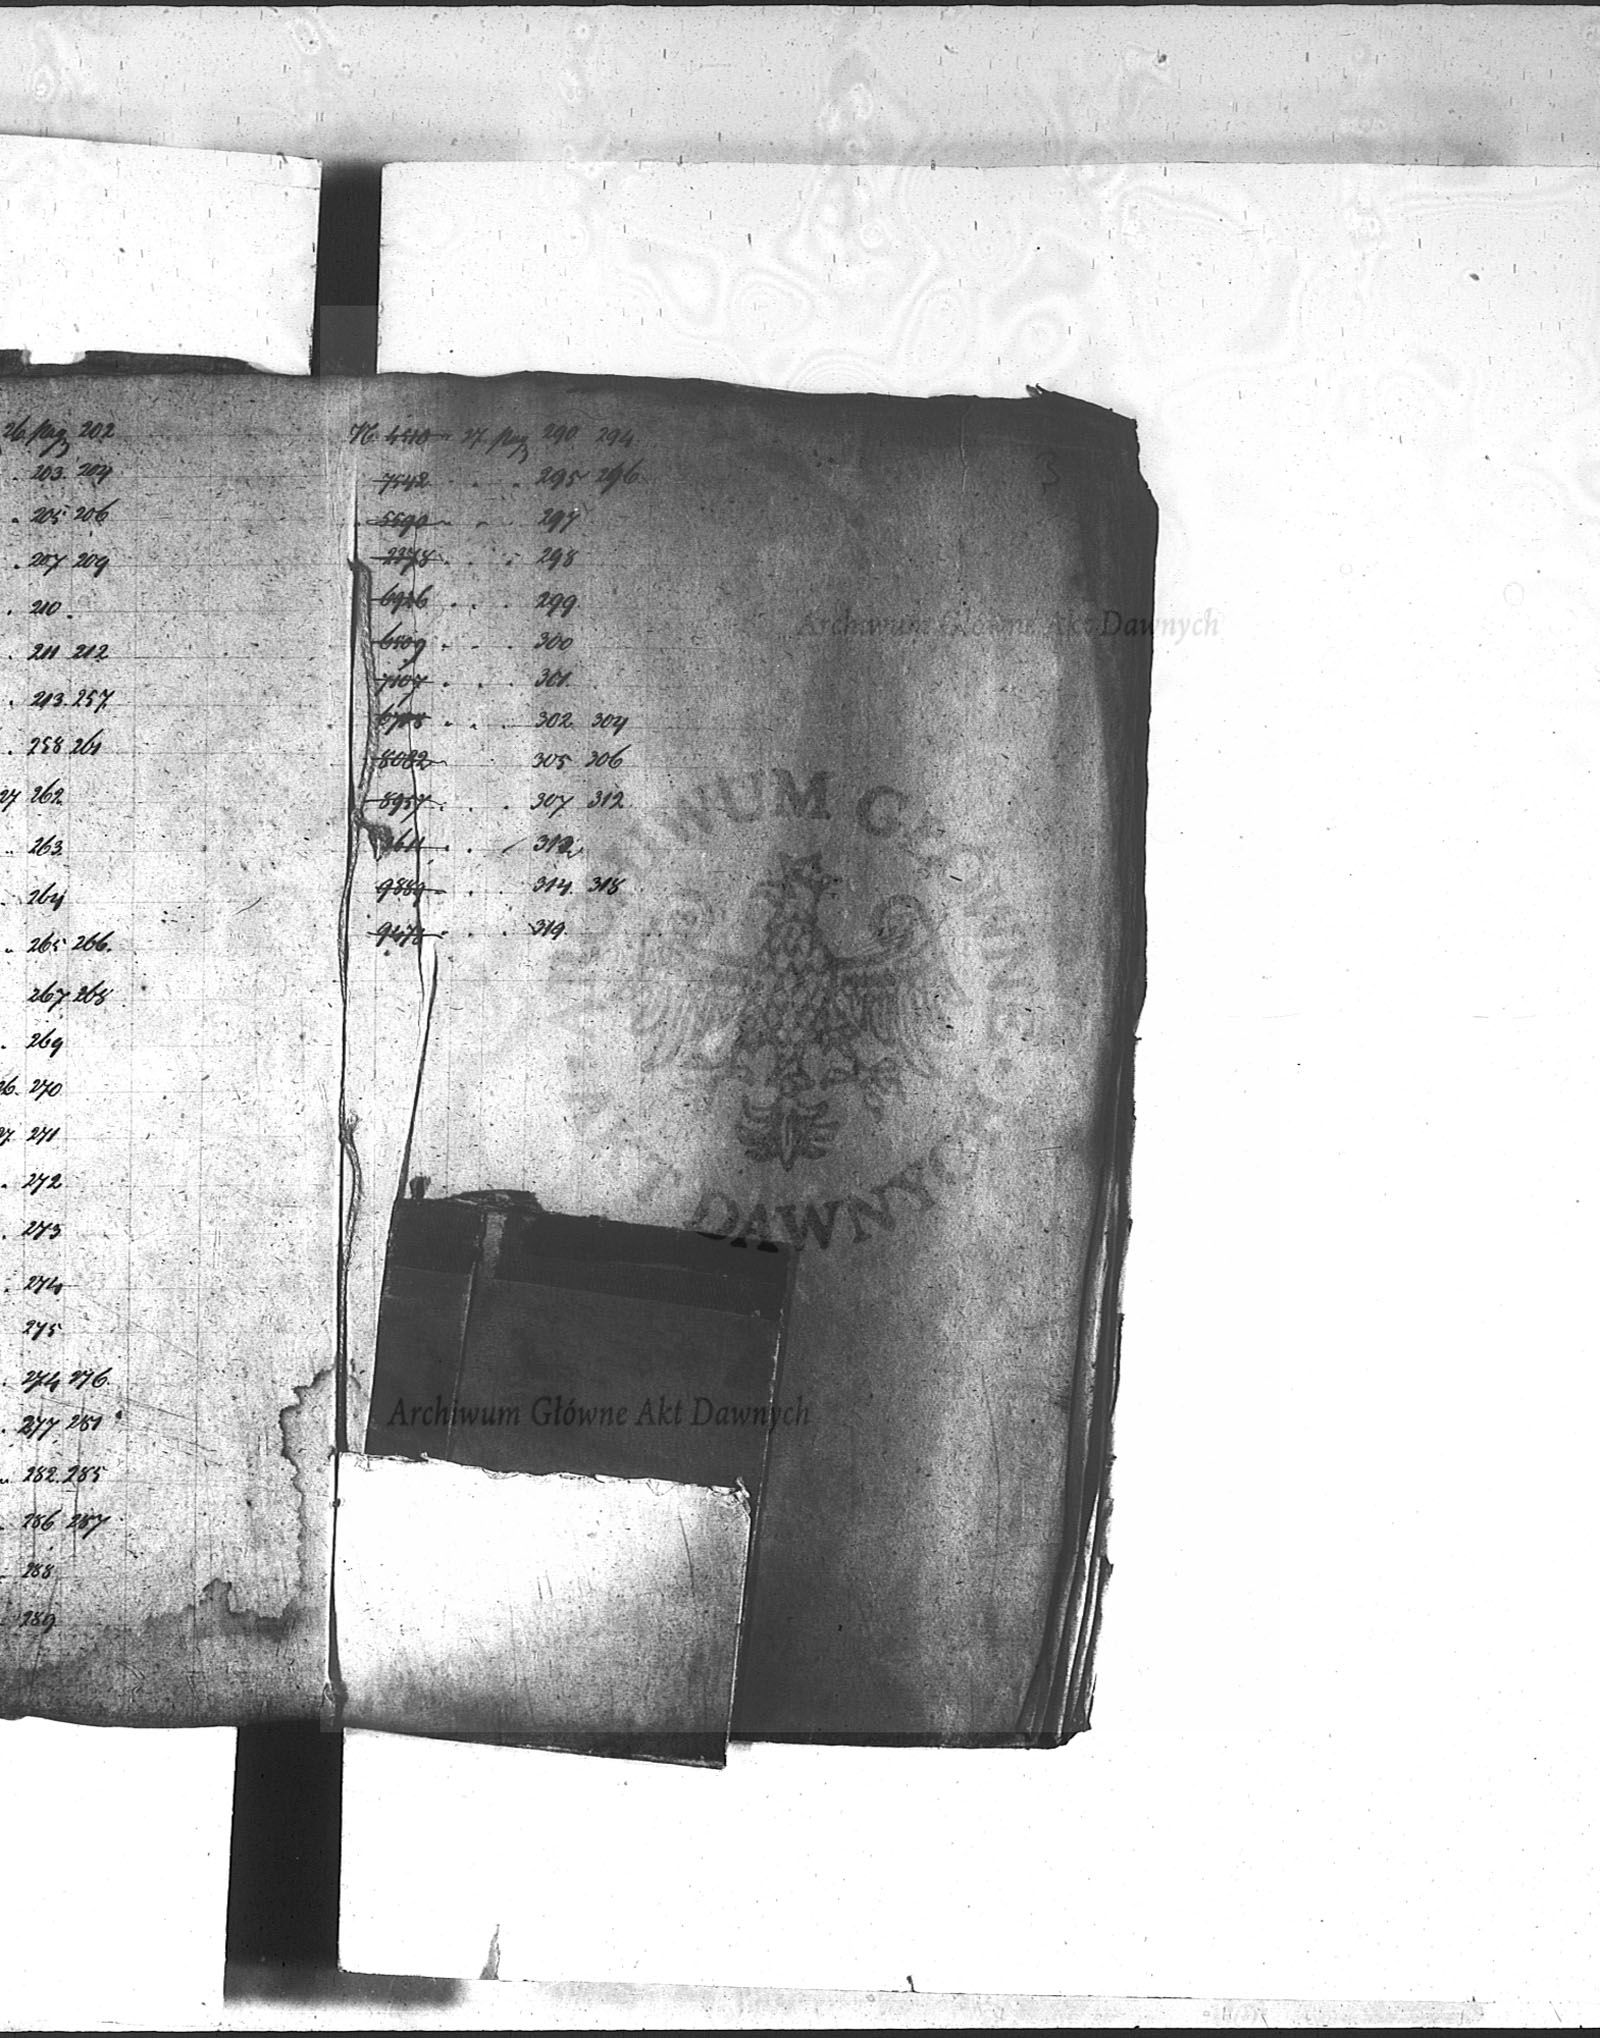 26. pag 202
. 203. 204
. 205 206
. 207 209
. 210.
. 211 212
. 213. 257.
. 258 261
27 262.
. 263.
. 264
. 265 266.
267 268
. 269
26. 270
27. 271
. 272
. 273
. 274
275
. 274 276.
. 277 281
. 282. 285
. 286 287
. 288
. 289
N. 4510 " 27. pag 290 294
7542 . . . 295 296
5590 . . 297
2278 . . . 298
6926 . . . 299
6509 . . . 300
7107 . . . 301.
. . . 302. 304
8082 . 305 306
8957 . . . 307 312
. . 313
9889 . . . 314. 318
9478 . . . 319.
3
Archiwum Główne Akt Dawnych
ARCHIWUM GŁÓWNE AKT DAWNYCH
Archiwum Główne Akt Dawnych